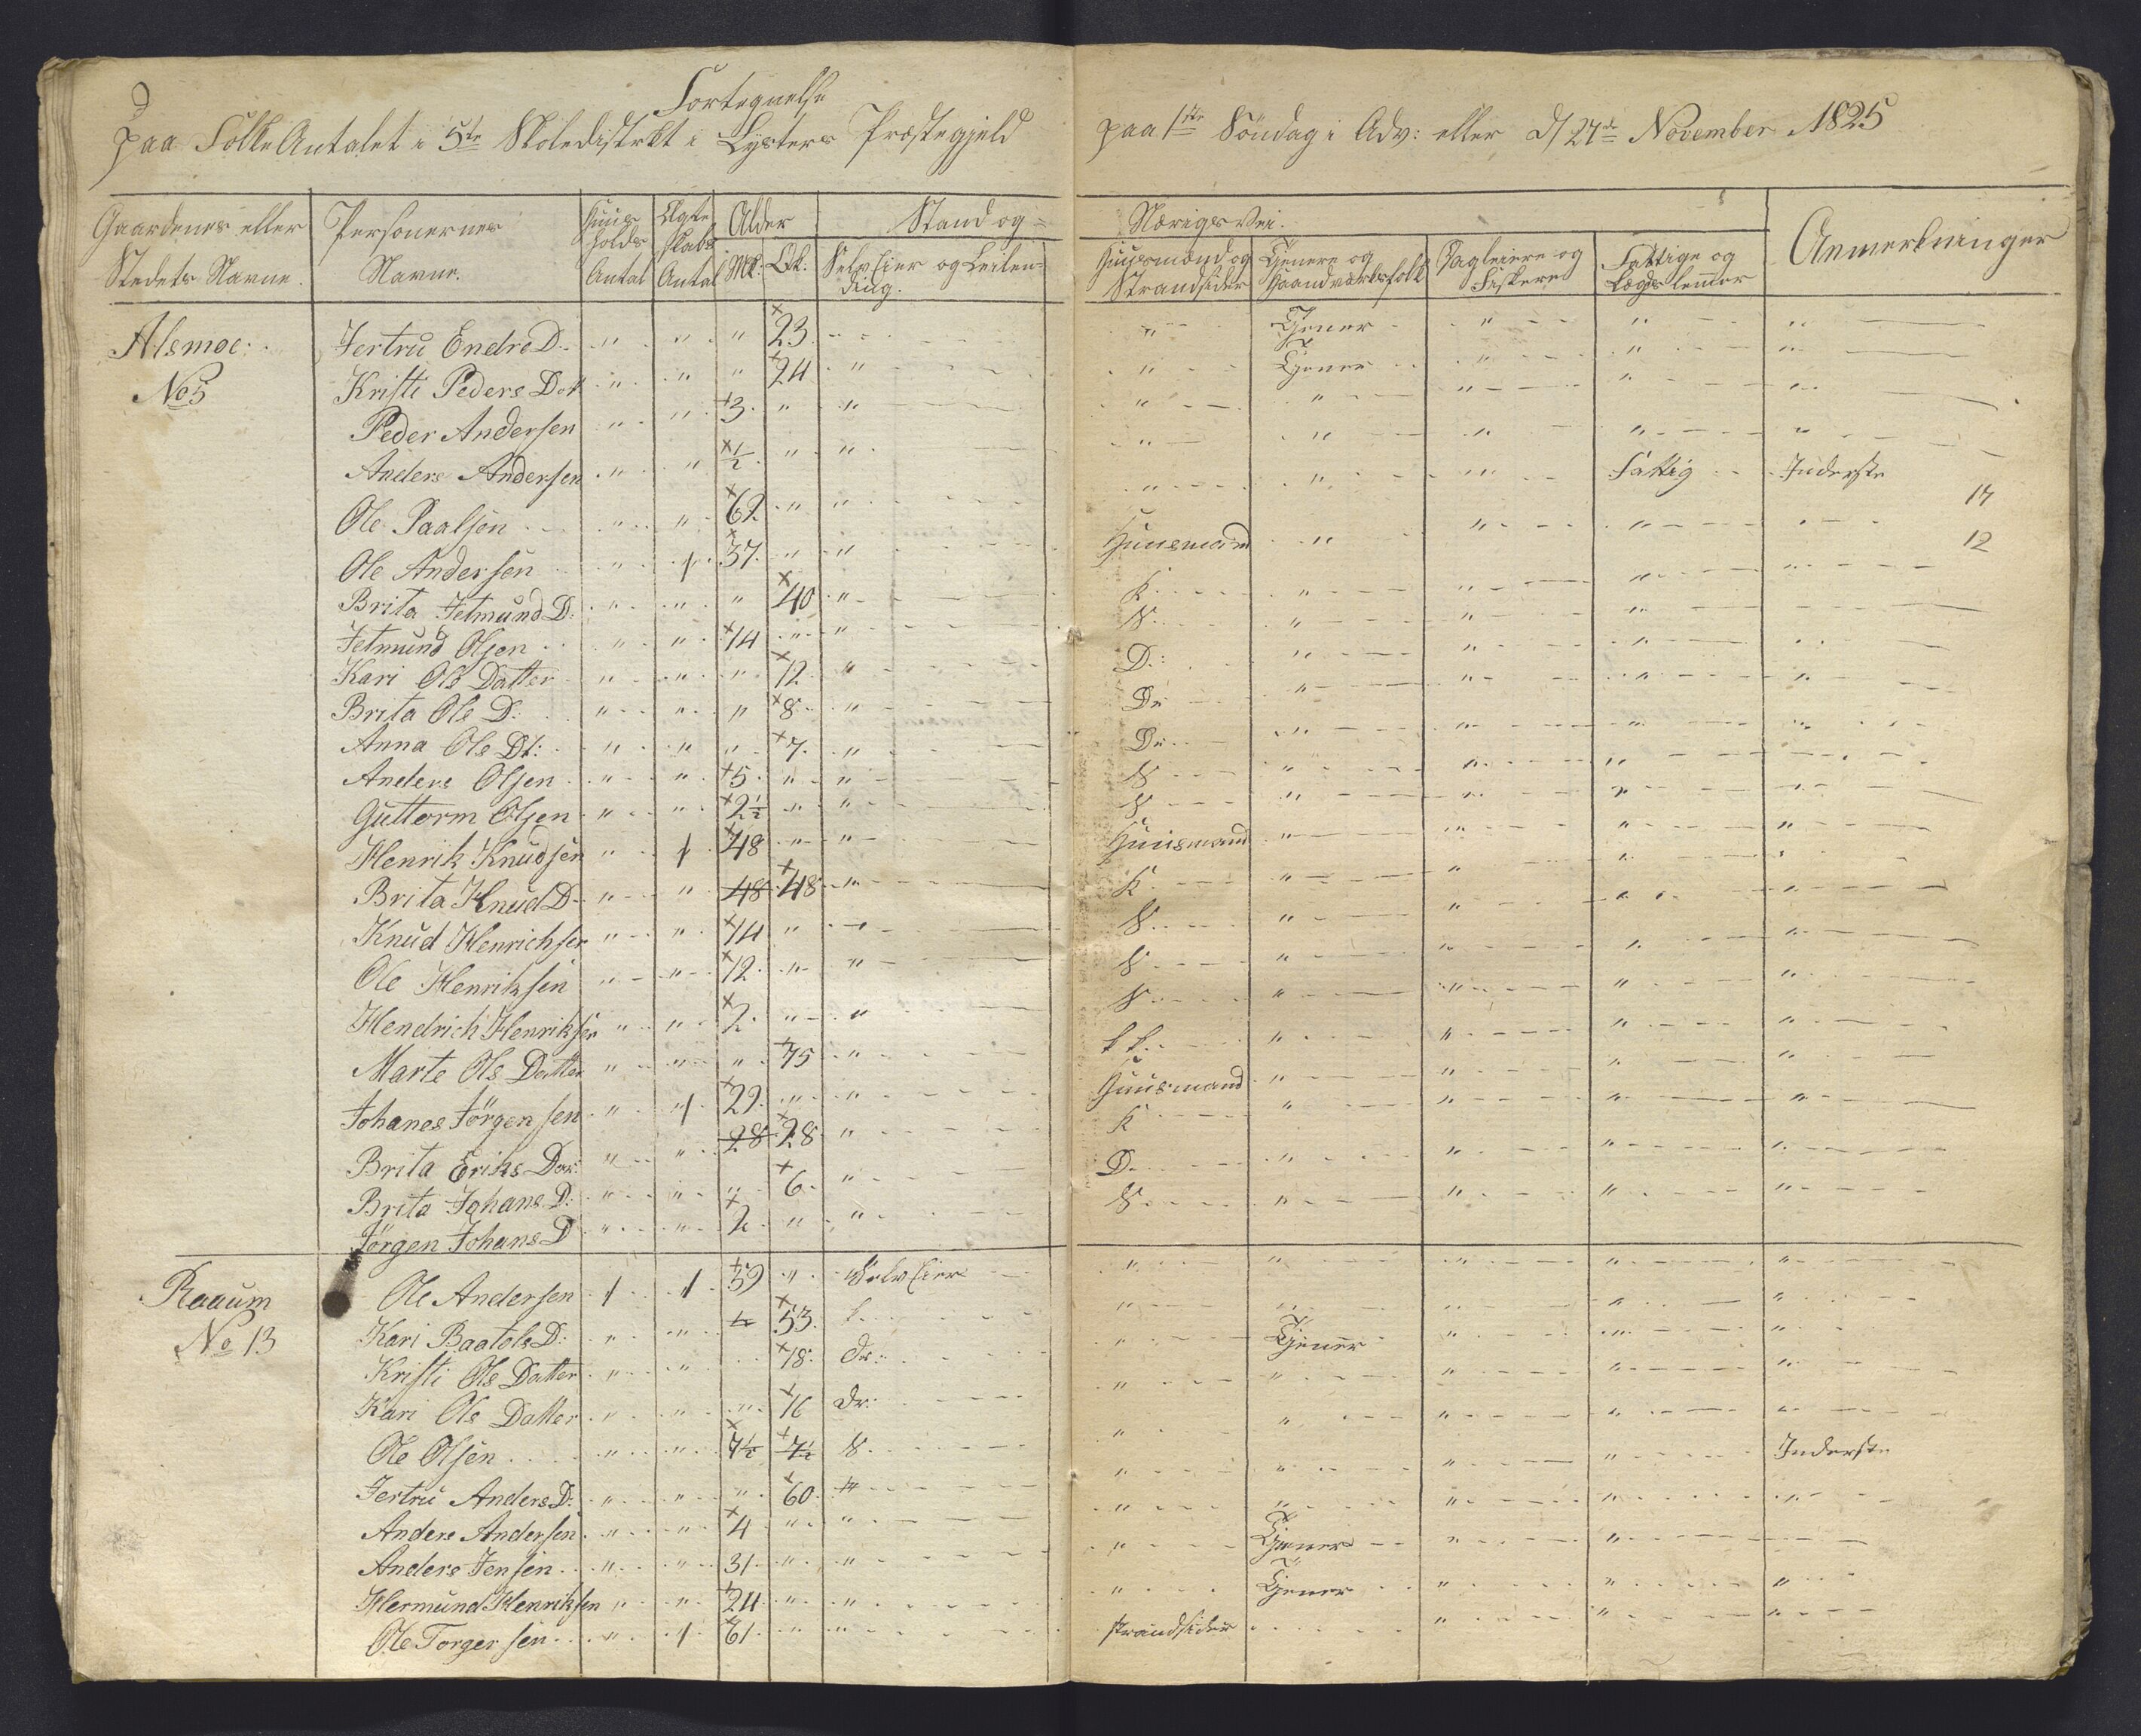 Fortegnelse
paa Folke Antalet i 5te Skoledistrikt i Lysters Præstegjeld paa 1ste Söndag i Adv: eller d/27de November 1825
Gaardenes eller Stedets Navne. | Personernes Navne. | Huus holds Antal | Ægte skabs Antal | Alder Mk: Qk: | Stand og = Nærigs Vei. | Anmerkninger
Selv Eier og Leilending. | Huusmænd og Strandsider | Tjenere og Haandværksfolk | Dagleiere og Fiskere | Fattige og Lægdslemmer
Alsmoe No 5 | Jertru Endre D. | " | " | " | 23 | " | Tjener | " | " | "
Kristi Peders Dot | " | " | " | 24 | " | " | Tjener | " | " | "
Peder Andersen | " | " | 3 | " | " | " | " | " | " | "
Anders Andersen | " | " | 1/2 | " | " | " | " | " | " | "
Ole Paalsön | " | " | 62 | " | " | " | " | " | Fattig | Inderste
14
Ole Andersen | " | 1 | 37 | " | " | Huusmand | " | " | " | 12
Brita Jetmund D: | " | " | " | 40 | " | K | " | " | " | "
Jetmund Olsen | " | " | 14 | " | " | S | " | " | "
Kari Ols Datter | " | " | " | 12 | " | D: | " | " | "
Brita Ole D: | " | " | " | 8 | " | Dr | " | " | " | "
Anna Ole Dt: | " | " | " | 7 | " | Dr | " | " | " | "
Anders Olsen | " | " | 5 | " | " | S | " | " | "
Guttorm Olsen | " | " | 2 1/2 | " | " | S | " | " | " | "
Henrik Knudsen | " | 1 | 48 | " | " | Huusmand | " | " | " | "
Brita Knud D | " | " | 48 | 48 | " | K | " | " | "
Knud Henrichsen | " | " | 14 | " | S | " | " | " | "
Ole Henriksen | " | " | 12 | " | " | S | " | " | " | "
Hendrich Henriksen | " | " | 2 | " | " | S | " | " | " | "
Marte Ols Datter | " | " | " | 75 | " | " | " | " | "
Johanes Jörgensen | " | 1 | 29 | " | " | Huusmand | " | " | " | "
Brita Eriks Dor: | " | " | 28 | 28 | " | K | " | " | " | "
Brita Johans D: | " | " | " | 6 | " | D | " | " | " | "
Jörgen Johans D | " | " | 2 | " | " | S | " | " | " | "
Raaum No 13 | Ole Andersen | 1 | 1 | 59 | " | Selv Eier | " | " | " | " | "
Kari Baatols D: | " | " | 53 | K | " | " | " | " | "
Kristi Ols Datter | " | " | 18 | Dr: | " | Tjener | " | " | "
Kari Ole Datter | " | " | " | 16 | Dr: | " | " | " | " | "
Ole Olsen | " | " | 7 1/2 | 7 1/2 | S | " | " | " | " | "
Jertru Anders D: | " | " | " | 60 | " | " | " | " | " | Inderste
Anders Andersen | " | " | 4 | " | " | " | " | " | " | "
Anders Jensen | " | " | 31 | " | " | " | Tjener | " | "
Hermund Henriksen | " | " | 24 | " | " | " | Tjener | " | " | "
Ole Torgersen | " | 1 | 61 | " | " | Strandsider | " | " | "